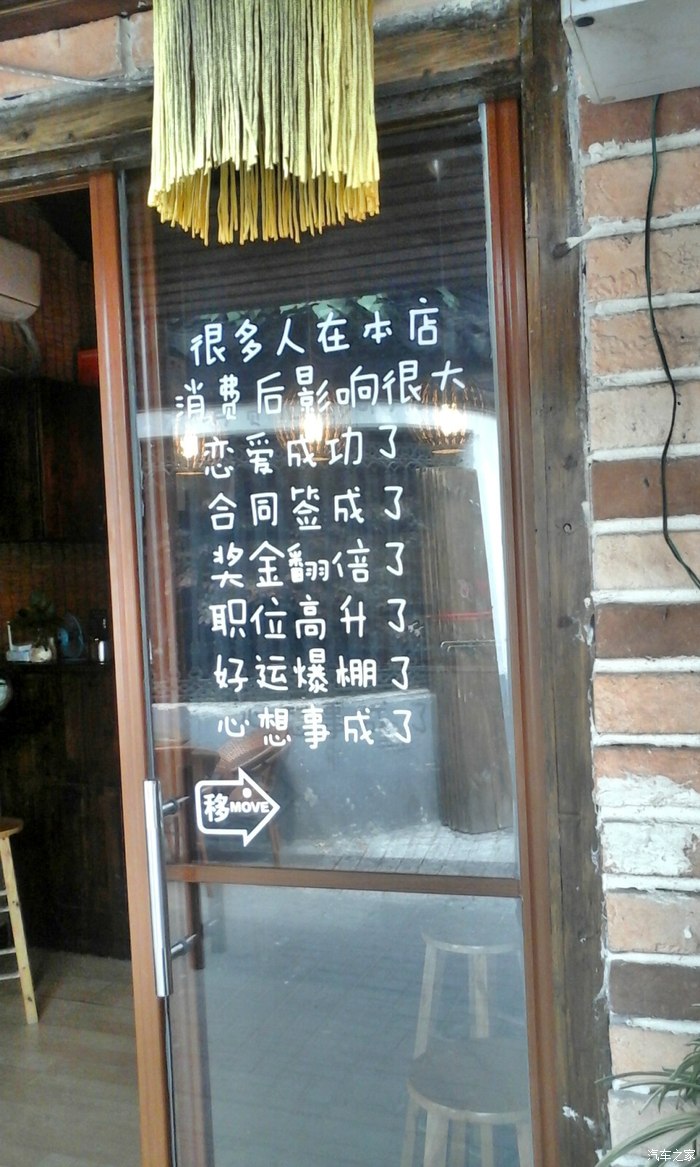 很多人在本店
消费后影响很大
恋爱成功了
合同签成了
奖金翻倍了
职位高升了
好运爆棚了
心想事成了
移MOVE
汽车之家